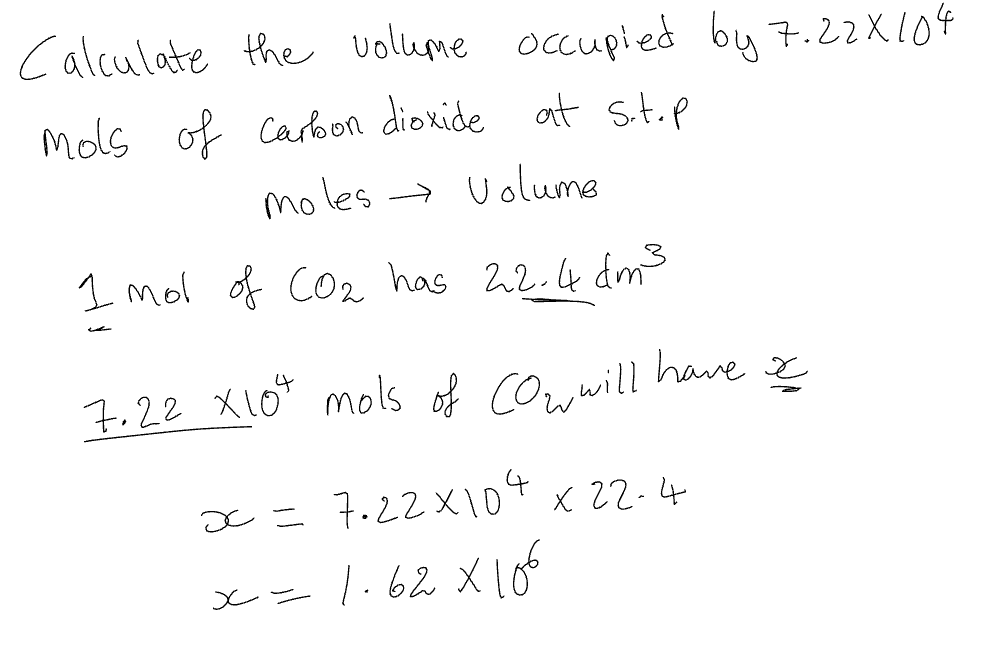 Calculate the volume occupied by 7.22 × 10⁴
mols of carbon dioxide at s.t.p
moles → volume
1 mol of CO₂ has 22.4 dm³
7.22 × 10⁴ mols of CO₂ will have x
x = 7.22 × 10⁴ × 22.4
x = 1.62 × 10⁶